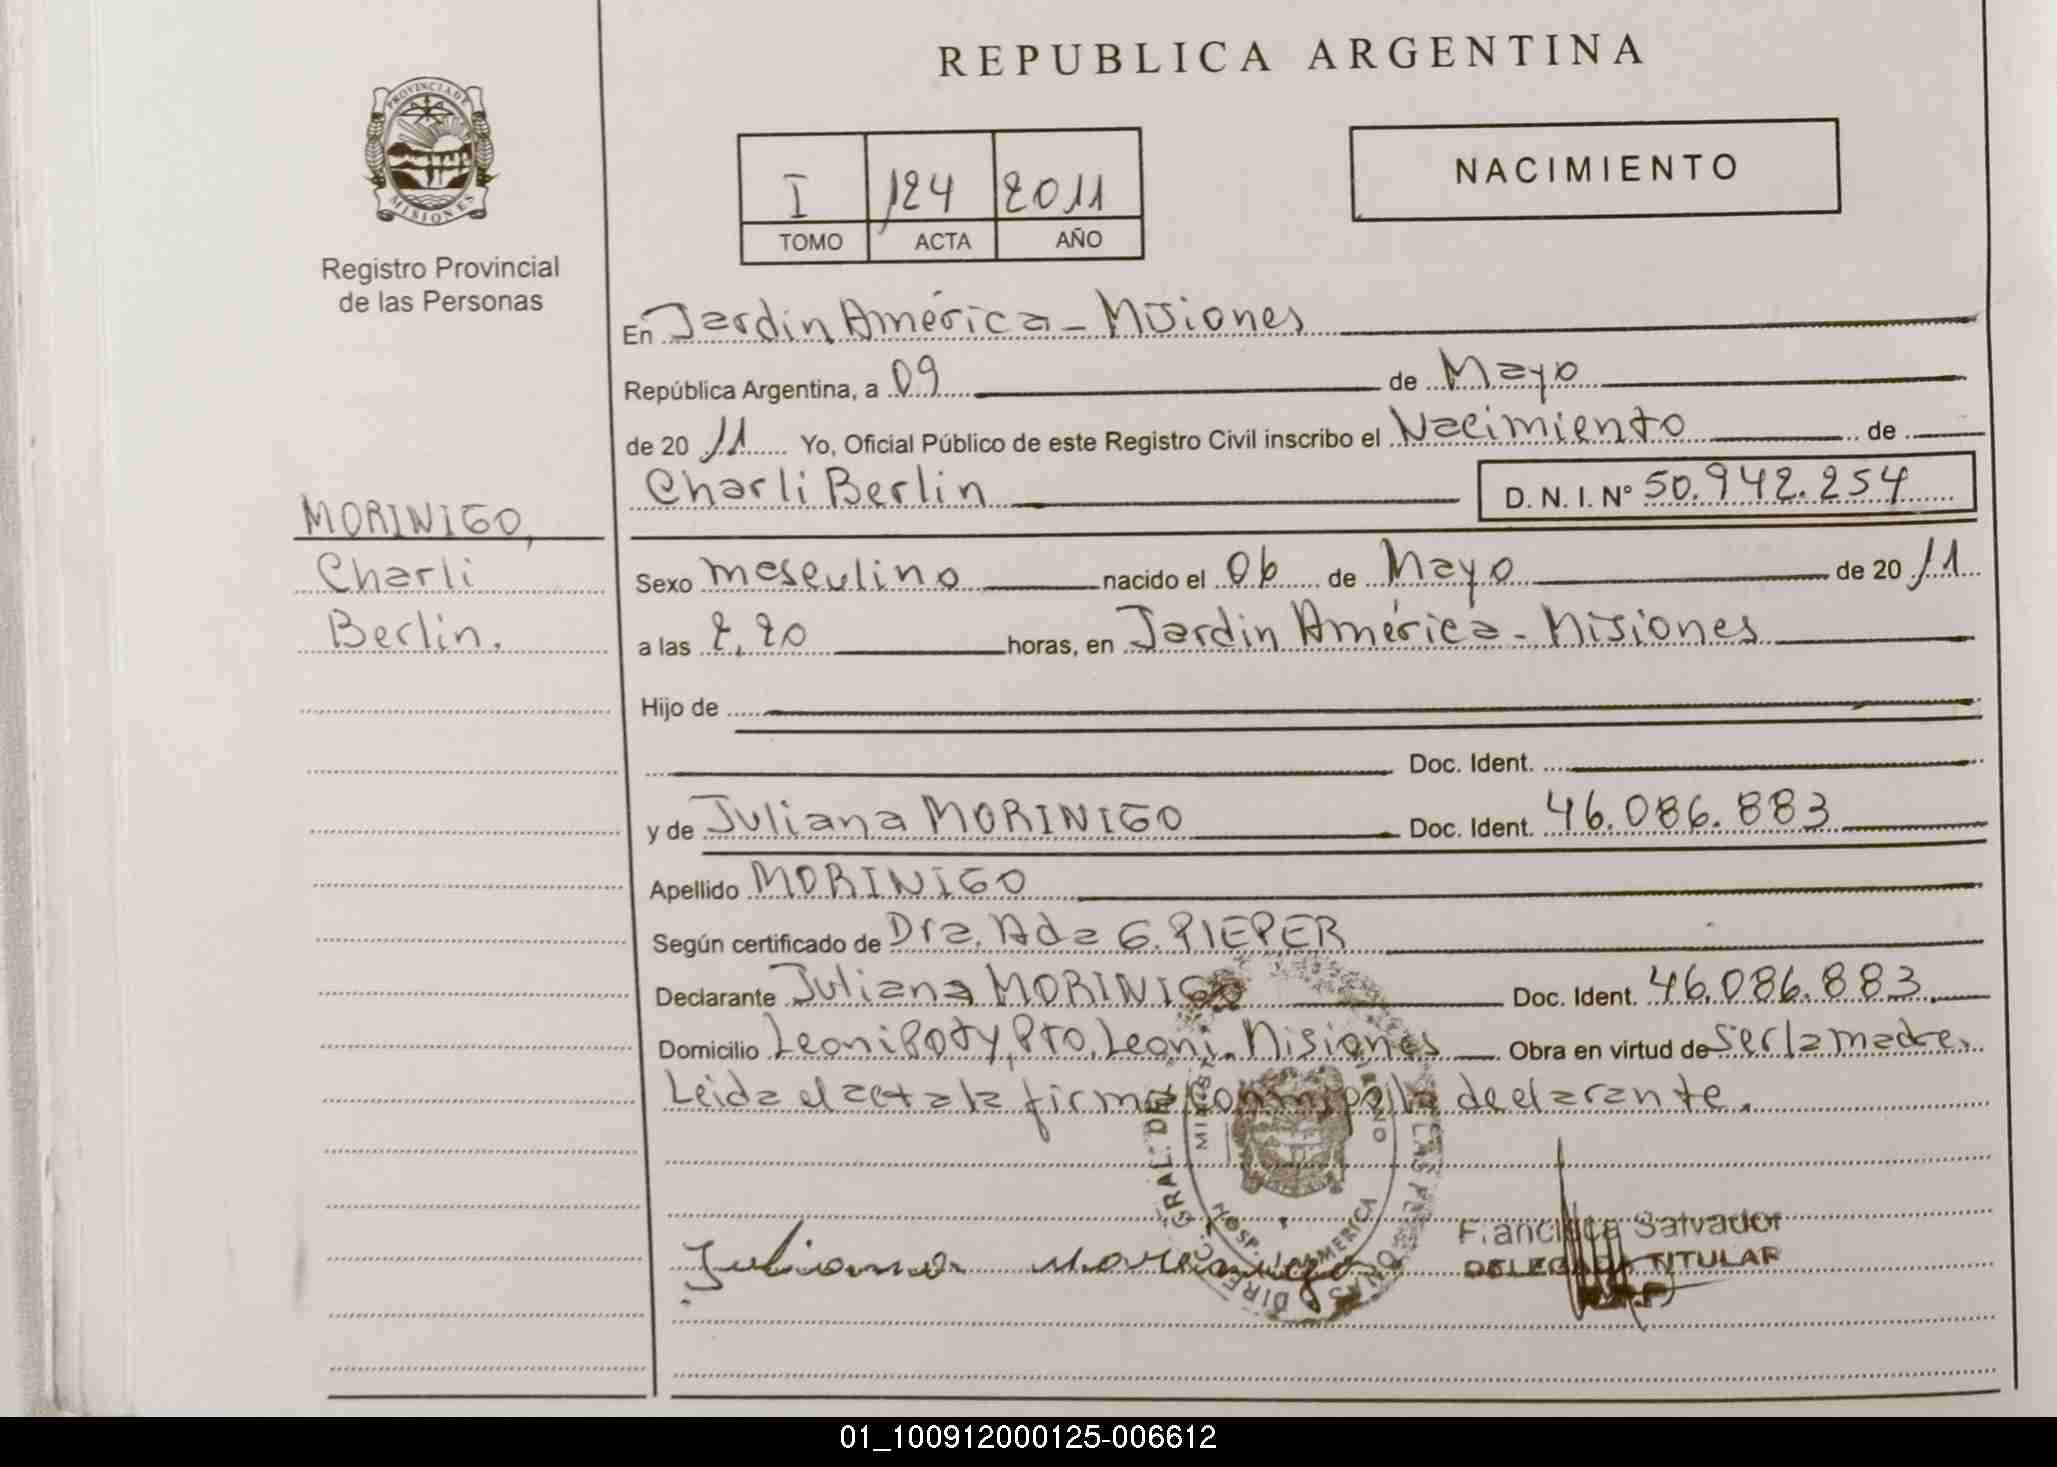 REPUBLICA ARGENTINA
PROVINCIA DE
MISIONES
Registro Provincial
de las Personas
I 124 2011
TOMO ACTA AÑO
NACIMIENTO
En Jardin América - Misiones
República Argentina, a 09 de Mayo
de 20 11 Yo, Oficial Público de este Registro Civil inscribo el Nacimiento de
Charli Berlin D. N. I. Nº 50.942.254
MORINIGO,
Charli
Berlin.
Sexo masculino nacido el 06 de Mayo de 20 11
a las 2,20 horas, en Jardin América - Misiones
Hijo de
Doc. Ident.
y de Juliana MORINIGO Doc. Ident. 46.086.883
Apellido MORINIGO
Según certificado de Dra. Ada G. PIEPER
Declarante Juliana MORINIGO Doc. Ident. 46.086.883
Domicilio Leoni Poty, Pto. Leoni - Misiones Obra en virtud de ser la madre.
Leida el acta la firma conmigo la declarante.
Juliana morinigo
Francisca Salvador
DELEGADA TITULAR
01_100912000125-006612